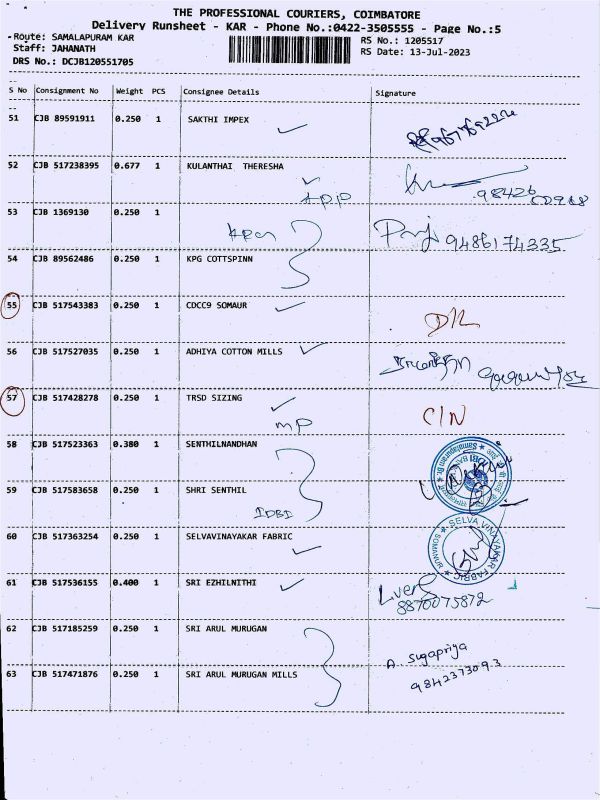 THE PROFESSIONAL COURIERS, COIMBATORE
Delivery Runsheet - KAR - Phone No.:0422-3505555 - Page No.:5
Route: SAMALAPURAM KAR
RS No.: 1205517
Staff: JAHANATH
RS Date: 13-Jul-2023
DRS No.: DCJB120551705
S No Consignment No Weight PCS Consignee Details Signature
51 CJB 89591911 0.250 1 SAKTHI IMPEX
52 CJB 517238395 0.677 1 KULANTHAI THERESHA
53 CJB 1369130 0.250 1
9486174335
54 CJB 89562486 0.250 1 KPG COTTSPINN
55 CJB 517543383 0.250 1 CDCC9 SOMAUR
DL
56 CJB 517527035 0.250 1 ADHIYA COTTON MILLS
57 CJB 517428278 0.250 1 TRSD SIZING
MP
C/N
58 CJB 517523363 0.380 1 SENTHILNANDHAN
59 CJB 517583658 0.250 1 SHRI SENTHIL
IDBI
60 CJB 517363254 0.250 1 SELVAVINAYAKAR FABRIC
SELVA VINAYAKAR FABRIC
SOMANUR
61 CJB 517536155 0.400 1 SRI EZHILNITHI
8870075872
62 CJB 517185259 0.250 1 SRI ARUL MURUGAN
A. Sugapriya
9842373093
63 CJB 517471876 0.250 1 SRI ARUL MURUGAN MILLS